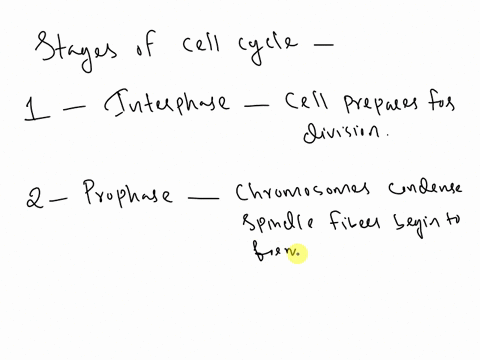 Stages of cell cycle —
1 — Interphase — Cell prepares for
division.
2 — Prophase — Chromosomes condense
spindle fibers begin to
form.